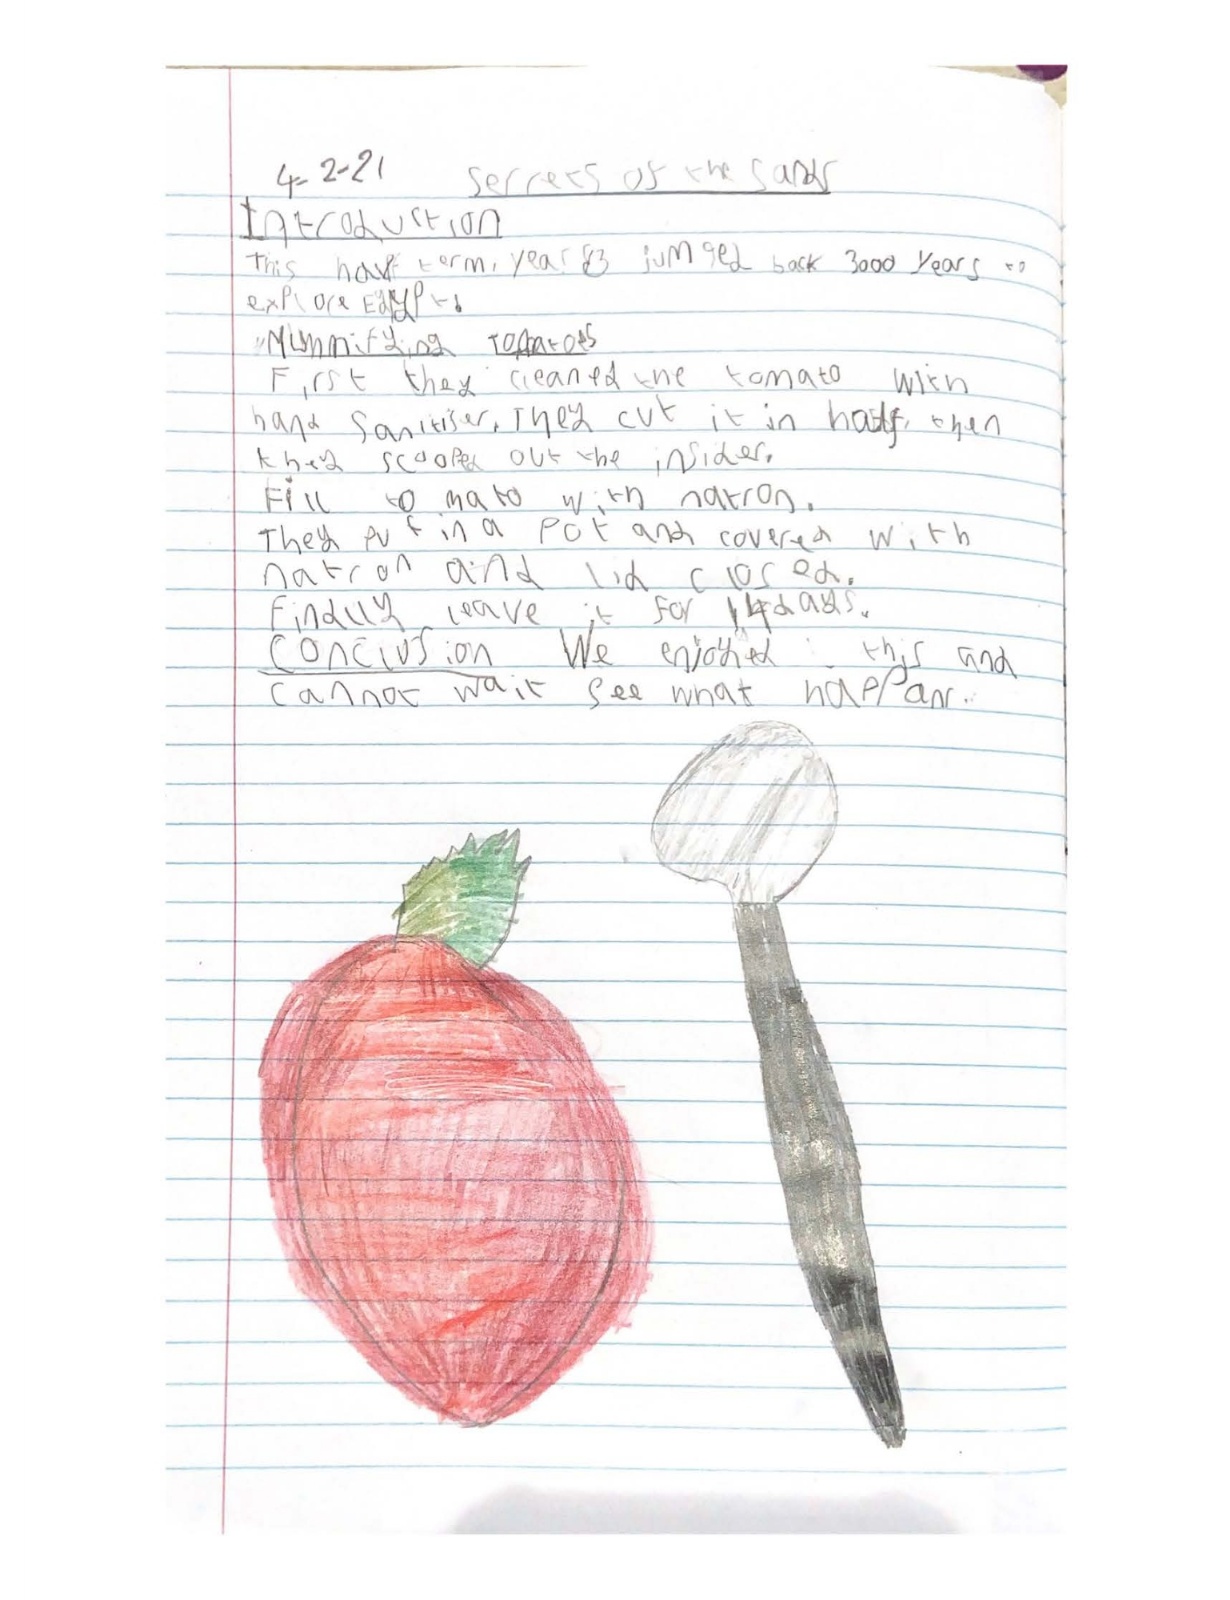 4-2-21 Secrets of the Sands
Introduction
This half term, year 3 jumped back 3000 years to
explore Egypt.
Mummifying tomatoes
First they cleaned the tomato with
hand Sanitiser. They cut it in half, then
they scooped out the insider.
Fill tomato with natron.
They put in a pot and covered with
natron and lid closed.
Finally leave it for 14 days.
Conclusion We enjoyed this and
cannot wait see what happan.